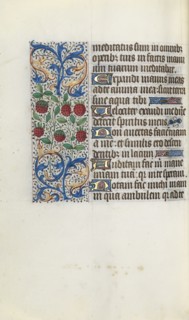 meditatus sum in omnibꝰ
operibꝰ tuis in factis manu
um tuarum meditabar.
Expandi manus meas
ad te anima mea sicut terra
sine aqua tibi
Velociter exaudi me dñe
defecit spiritus meus
Non avertas faciem tuam
a me et similis ero descen
dentibꝰ in lacum
Auditam fac mi mane
mam tuã q̃ in te speravi.
Notam fac michi viam
in qua ambulem q̃ ad te